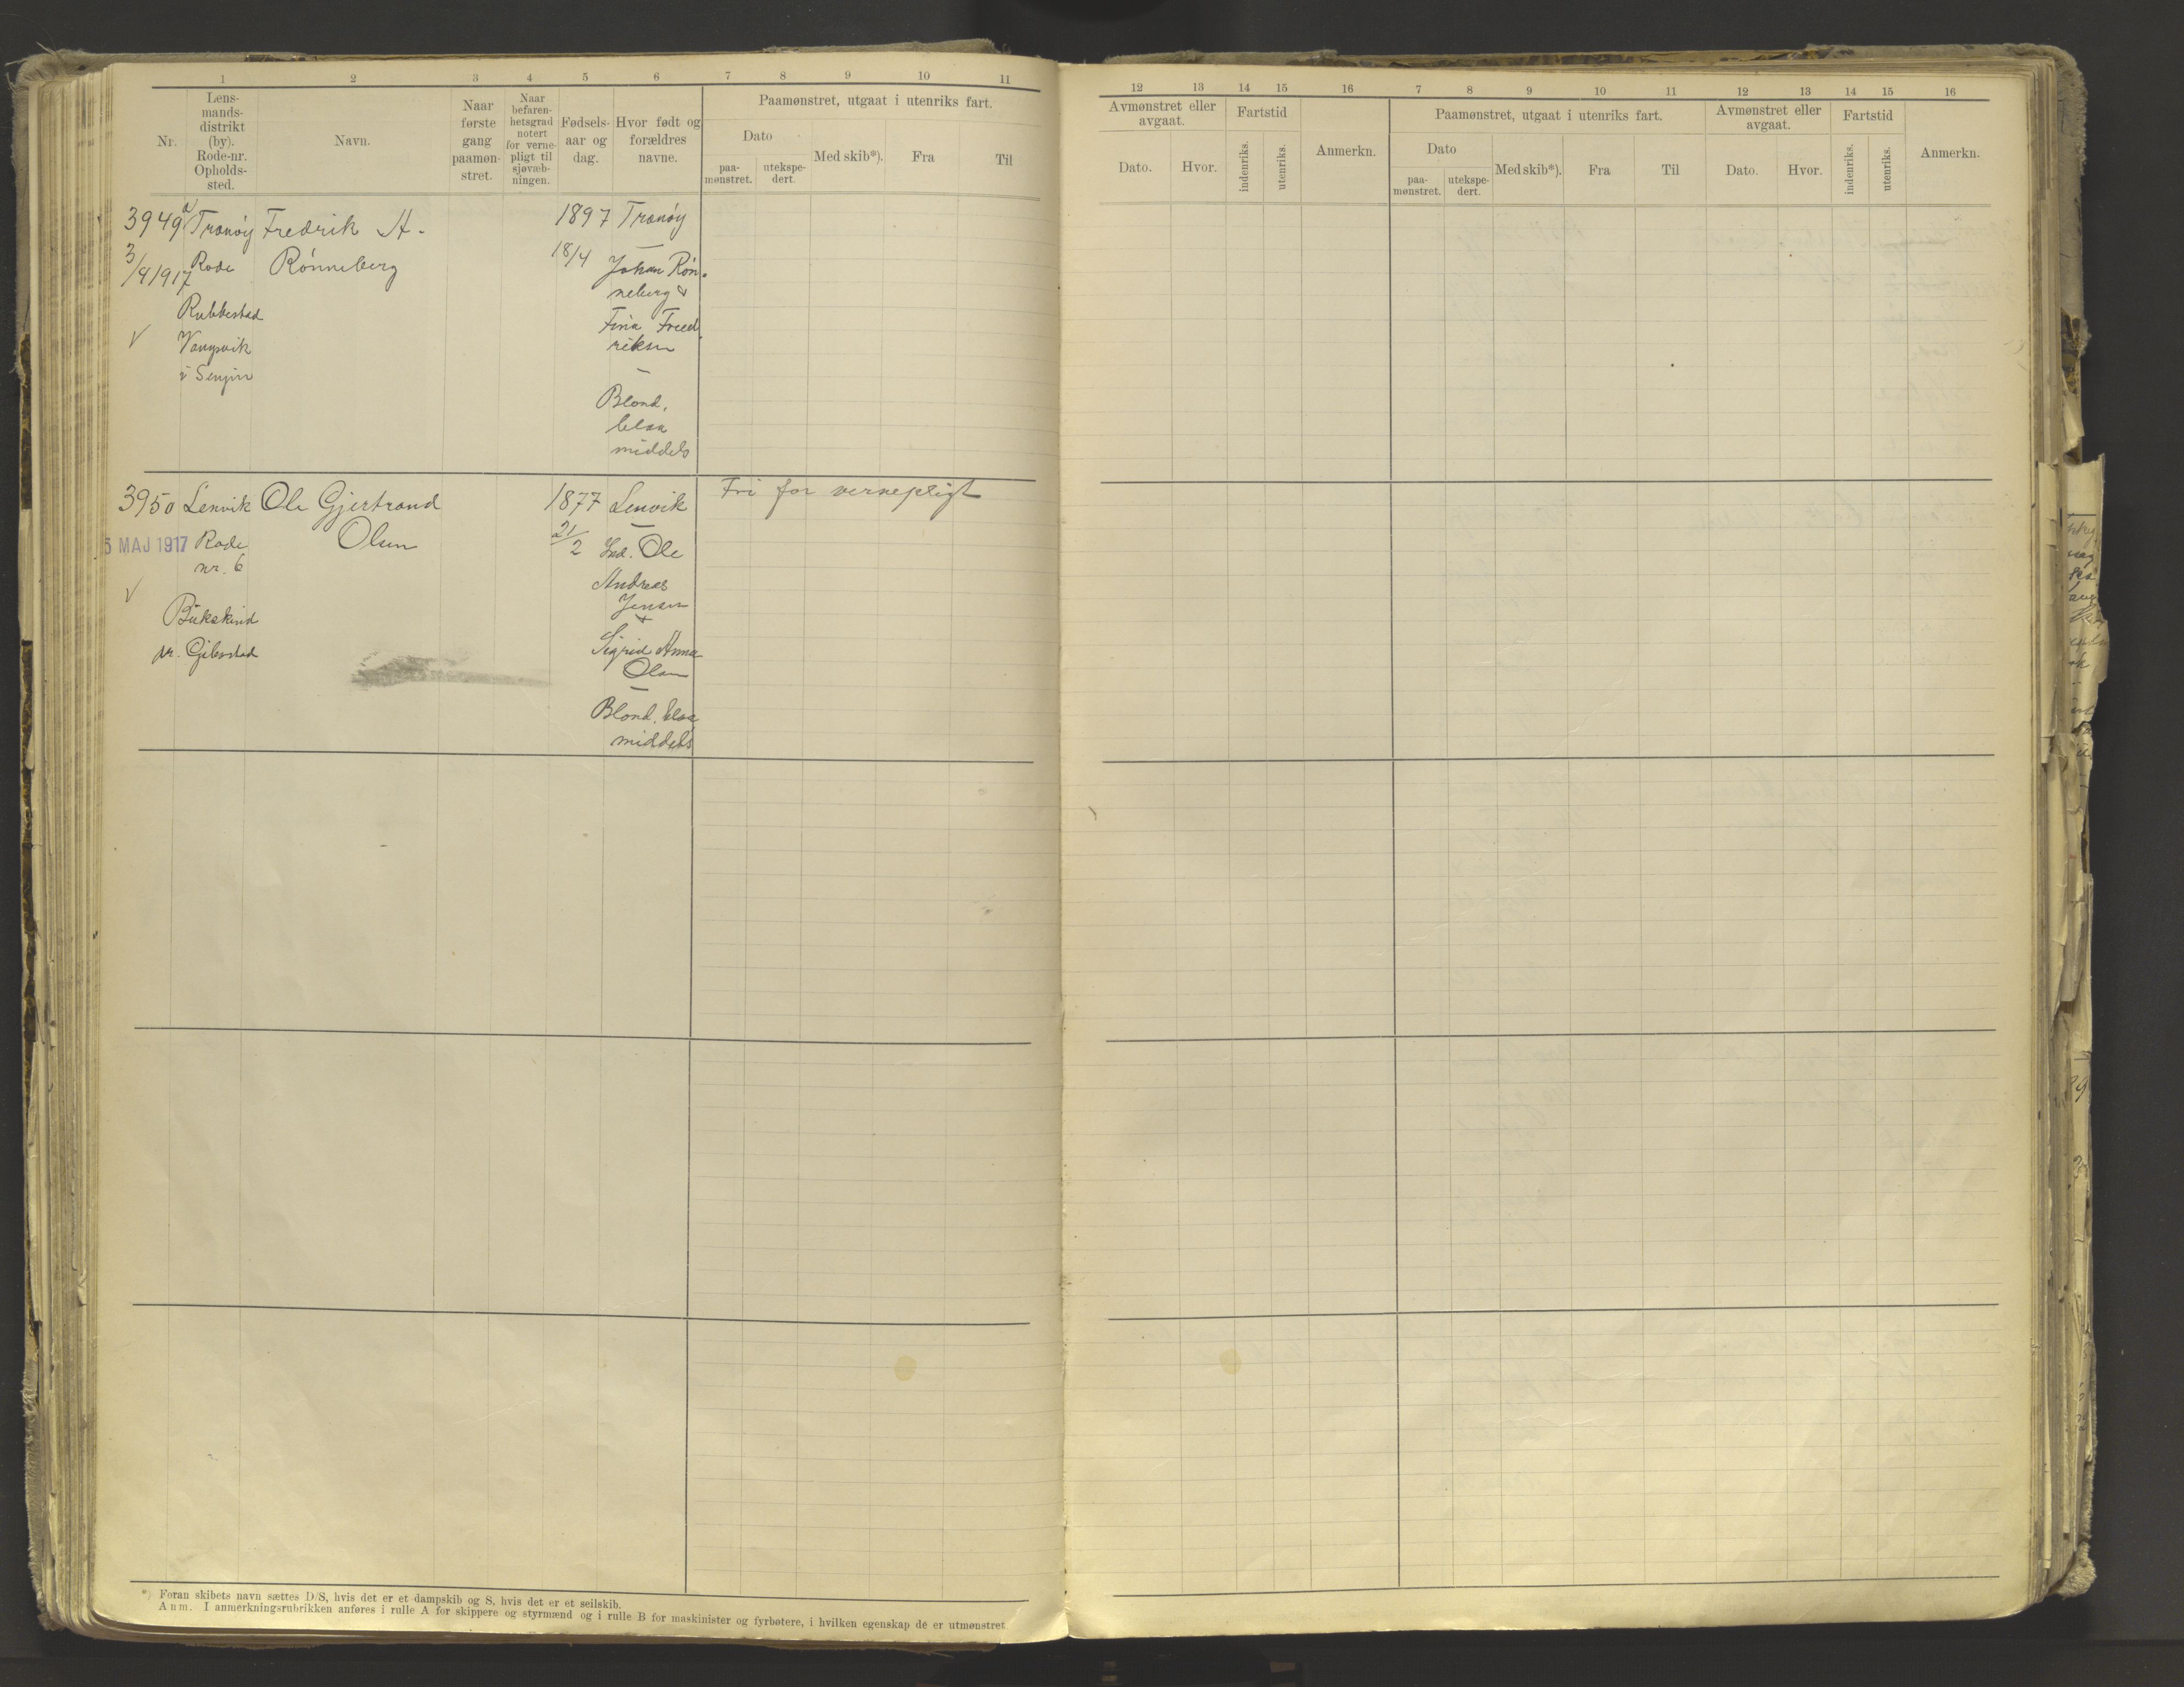 1 2 3 4 5 6 7 8 9 10 11
Nr.
Lens-
mands-
distrikt
(by).
Rode-nr.
Opholds-
sted.
Navn.
Naar
første
gang
paamøn-
stret.
Naar
befaren-
hetsgrad
notert
for verne-
pligt til
sjøvæb-
ningen.
Fødsels-
aar og
dag.
Hvor født og
forældres
navne.
Paamønstret, utgaat i utenriks fart.
Dato
paa-
mønstret.
utekspe-
dert.
Med skib*).
Fra
Til
3949 Tranöy Fredrik A. 1897 Tranöy
3/4 1917 Rode Rönneberg 18/4 Johan Rön-
neberg &
Rubbestad
Fina Fred-
Vangsvik
riksen
i Senjen
Blond,
blaa
middels
3950 Lenvik Ole Gjertrand 1877 Lenvik Fri for vernepligt
5 MAJ 1917 Rode Olsen 21/2 Ole
nr. 6
Andreas
Jensen
Bukskind
pr. Gibostad
Sigrid Anna
Olsen
Blond, blaa
middels
*) Foran skibets navn sættes D/S, hvis det er et dampskib og S, hvis det er et seilskib.
Anm. I anmerkningsrubrikken anføres i rulle A for skippere og styrmænd og i rulle B for maskinister og fyrbøtere, i hvilken egenskap de er utmønstret
12 13 14 15 16 7 8 9 10 11 12 13 14 15 16
Avmønstret eller
avgaat.
Dato.
Hvor.
Fartstid
indenriks.
utenriks.
Anmerkn.
Paamønstret, utgaat i utenriks fart.
Dato
paa-
mønstret.
utekspe-
dert.
Med skib*).
Fra
Til
Avmønstret eller
avgaat.
Dato.
Hvor.
Fartstid
indenriks.
utenriks.
Anmerkn.